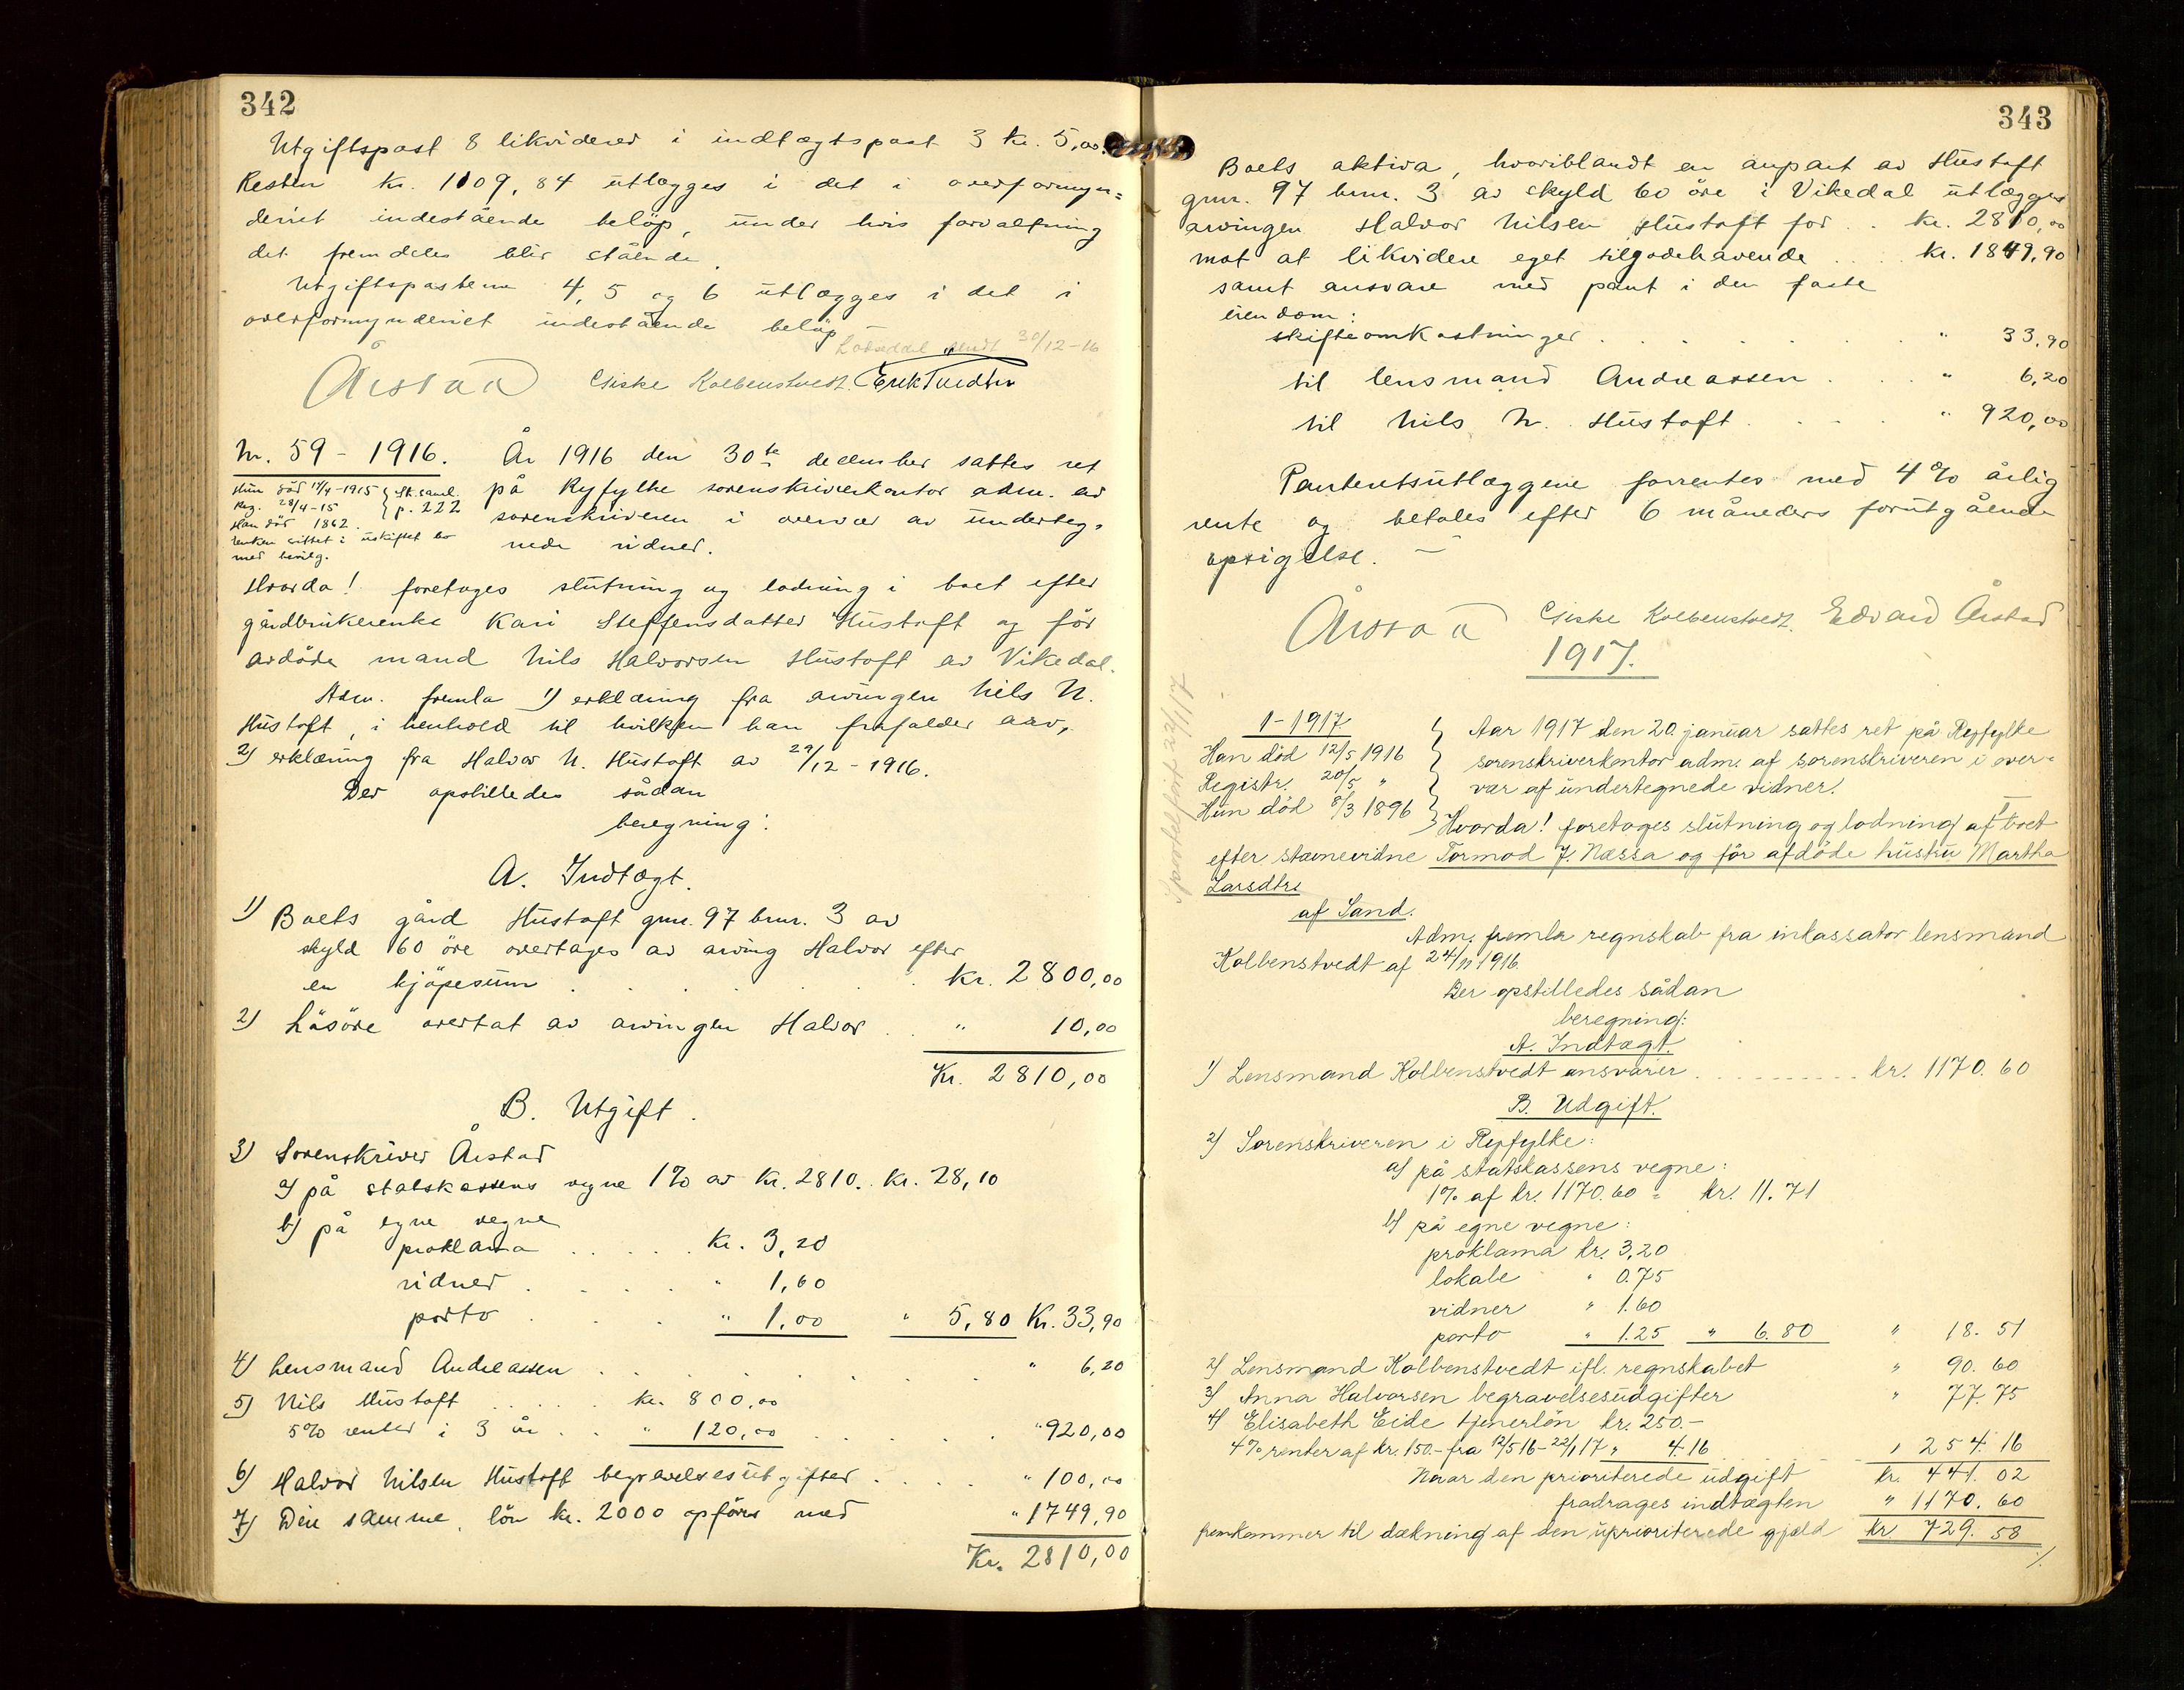 342
Utgiftspost 8 likvideres i indtægtspost 3 kr. 5,00.
Resten kr. 1109,84 utlægges i det i overformyn=
deriet indestående beløp, under hvis forvaltning
det fremdeles blir stående.
Utgiftsposterne 4, 5 og 6 utlægges i det i
overformynderiet indestående beløp —
Lodseddel sendt 30/12-16
Årstad Giske Kolbenstvedt.
Nr. 59 - 1916. År 1916 den 30te december sattes ret
på Ryfylke sorenskriverkontor adm. av
sorenskriveren i overvær av underteg=
nede vidner.
Hun död 17/4-1915 } Sk.saml.
Reg. 28/4-15 } p. 222
Han död 1862.
Enken sittet i uskiftet bo
med bevilg.
Hvorda! foretages slutning og lodning i boet efter
gårdbrukerenke Kari Steffensdatter Hustoft og før
avdöde mand Nils Halvorsen Hustoft av Vikedal.
Adm. fremla 1) erklæring fra arvingen Nils N.
Hustoft, i henhold til hvilken han frafalder arv,
2) erklæring fra Halvor N. Hustoft av 29/12 - 1916.
Der opstilledes sådan
beregning:
A. Indtægt.
1) Boets gård Hustoft gnr. 97 bnr. 3 av
skyld 60 öre overtages av arving Halvor efter
en kjöpesum . . . . . . kr. 2800,00
2) Lösöre overtat av arvingen Halvor . . " 10,00
Kr. 2810,00
B. Utgift.
3) Sorenskriver Årstad
a) på statskassens vegne 1% av kr. 2810. kr. 28,10
b) på egne vegne
proklama . . . . . kr. 3,20
vidner . . . . " 1,60
porto . . . " 1,00 " 5,80 Kr. 33,90
4) Lensmand Andreassen . . . . . . . . " 6,20
5) Nils Hustoft . . . . . kr. 800,00
5% renter i 3 år . . " 120,00 . . . . . "920,00
6) Halvor Nilsen Hustoft begravelsesutgifter . . . . " 100,00
7) Den samme, lön kr. 2000 opföres med "1749,90
Kr. 2810,00
343
Boets aktiva, hvoriblandt en anpart av Hustoft
gnr. 97 bnr. 3 av skyld 60 öre i Vikedal utlægges
arvingen Halvor Nilsen Hustoft for . . kr. 2810,00
mot at likvidere eget tilgodehavende . . . . kr. 1849,90
samt ansvare med pant i den faste
eiendom:
skifteomkostninger . . . . . . . " 33,90
til lensmand Andreassen . . . " 6,20
til Nils N. Hustoft . . . . " 920,00
Panteretsutlæggene forrentes med 4% årlig
rente og betales efter 6 måneders forutgående
opsigelse. —
Årstad Giske Kolbenstvedt. Edvard Årstad
1917.
Sportelført 22/1 17
1-1917
Han död 12/5 1916
Registr. 20/5 "
Hun död 8/3 1896
Aar 1917 den 20. januar sattes ret på Ryfylke
sorenskriverkontor adm. af sorenskriveren i over=
vær af undertegnede vidner.
Hvorda! foretoges slutning og lodning af boet
efter stævnevidne Tormod J. Næssa og før afdöde hustru Martha
Larsdtr.
af Sand.
Adm. fremla regnskab fra inkassator lensmand
Kolbenstvedt af 24/11 1916.
Der opstilledes sådan
beregning:
A. Indtægt.
1) Lensmand Kolbenstvedt ansvarer . . . . . . . . . . . kr. 1170.60
B. Udgift.
2) Sorenskriveren i Ryfylke:
a) på statskassens vegne:
1% af kr. 1170.60 = kr. 11.71
b) på egne vegne:
proklama kr. 3.20
lokale " 0.75
vidner " 1.60
porto " 1.25 " 6.80 " 18.51
2) Lensmand Kolbenstvedt ifl. regnskabet " 90.60
3) Anna Halvorsen begravelsesudgifter " 77.75
4) Elisabeth Eide tjenerlön kr. 250.-
4% renter af kr. 150.- fra 12/5 16 - 22/1 17 " 4.16 . . . . " 254.16
Naar den prioriterede udgift kr. 441.02
fradrages indtægten " 1170.60
fremkommer til dækning af den uprioriterede gjæld kr. 729.58
./.